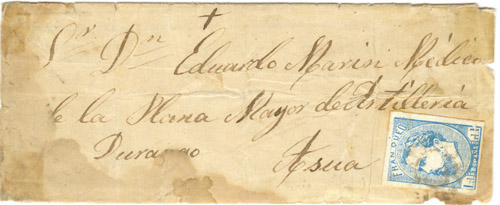 Sr. Dn Eduardo Marin Médico
de la Plana Mayor de Artillería
Durango Asua
FRANQUEO